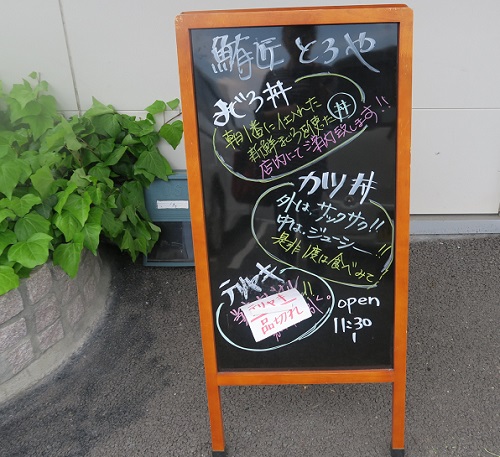 鮪匠 とろや
まぐろ丼
朝1番に仕入れた
新鮮まぐろを使った丼
店内にてご案内致します!!
カツ丼
外は、サックサク!!
中は、ジューシー!!
是非1度は食べみて
テリヤキ
品切れ
open
11:30